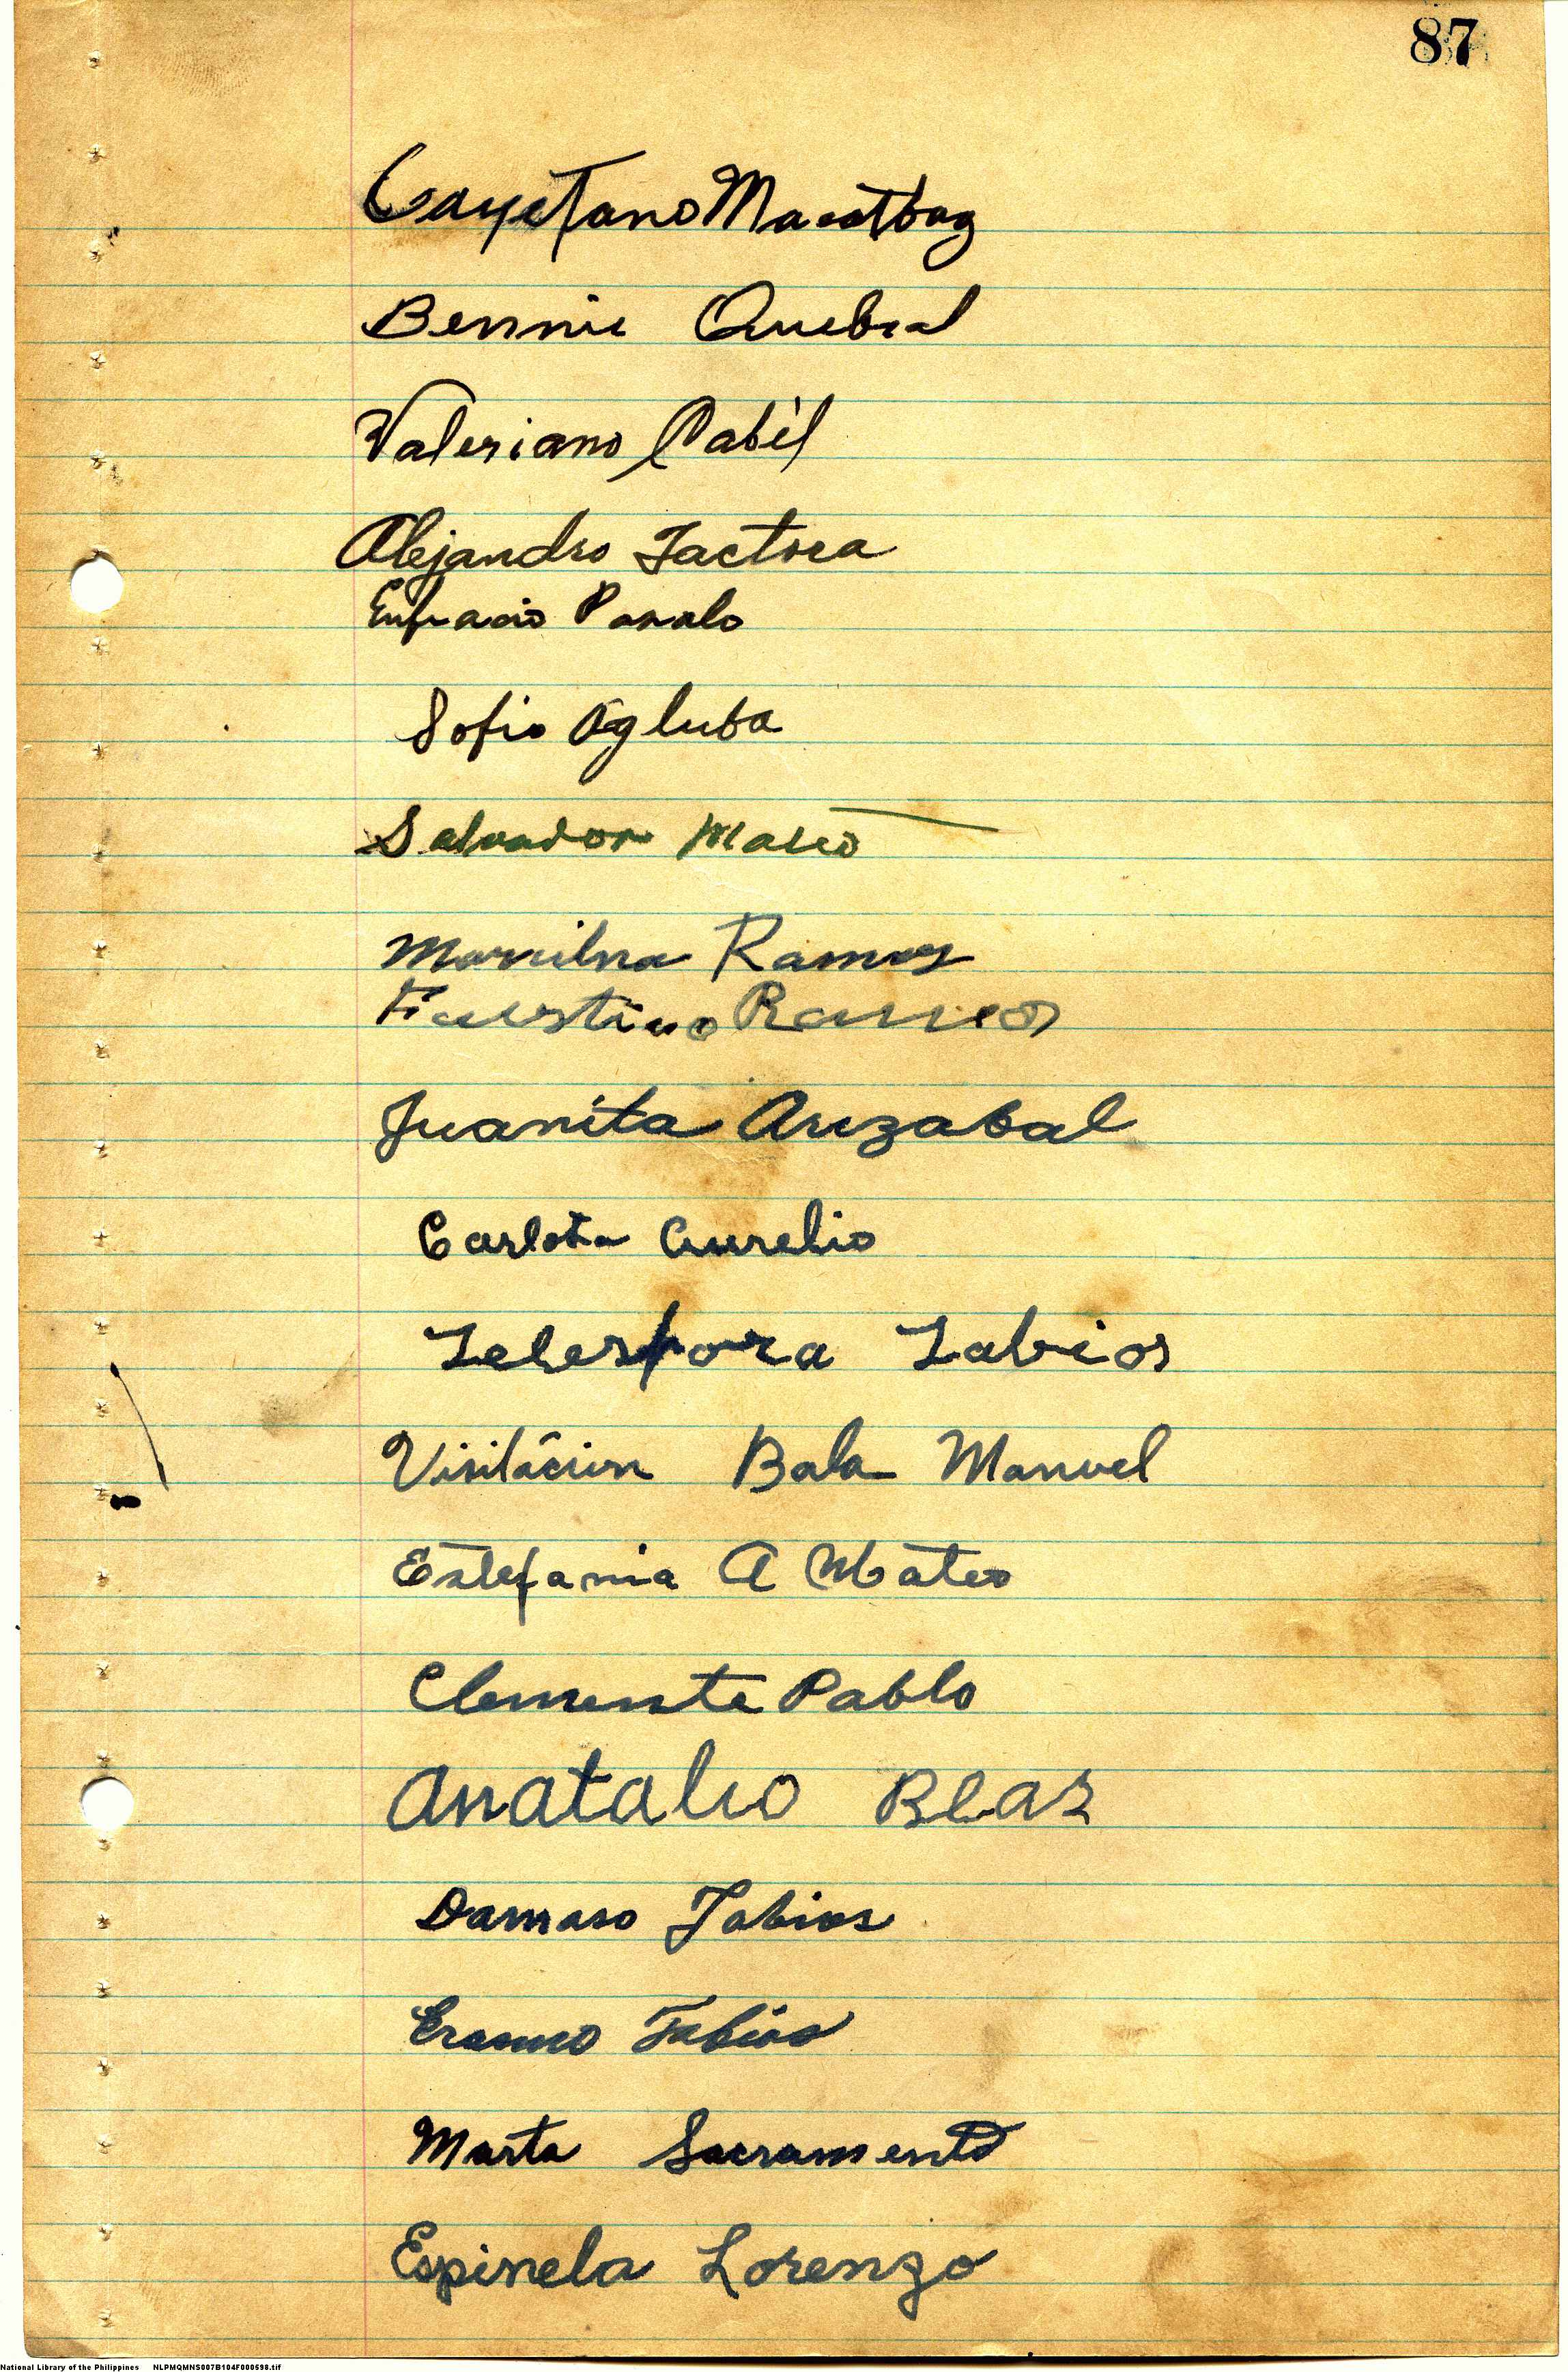 87
Cayetano Macatbag
Bennie Quebral
Valeriano Cabil
Alejandro Factora
Eufracio
Sofio Agluba
Salvador Mateo
Ramos
Faustino Ramos
Juanita Aruzabal
Carlota Aurelio
Telespora Tabios
Visitacion Bala Manuel
Estefania A Mateo
Clemente Pablo
Anatalio Blas
Damaso Tabios
Erasmo Tabios
Marta Sacramento
Espinela Lorenzo
National Library of the Philippines NLPMQMNS007B104F000598.tif